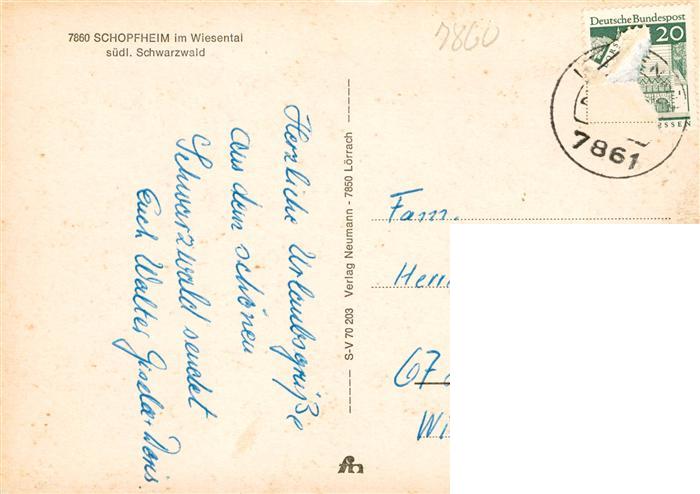 7860 SCHOPFHEIM im Wiesental
südl. Schwarzwald
7860
Deutsche Bundespost
20
7861
Herzliche Urlaubsgrüße
aus dem schönen
Schwarzwald sendet
Euch Walter Gisela + Doris.
S-V 70 203 Verlag Neumann - 7850 Lörrach
Fam.
Herr
67